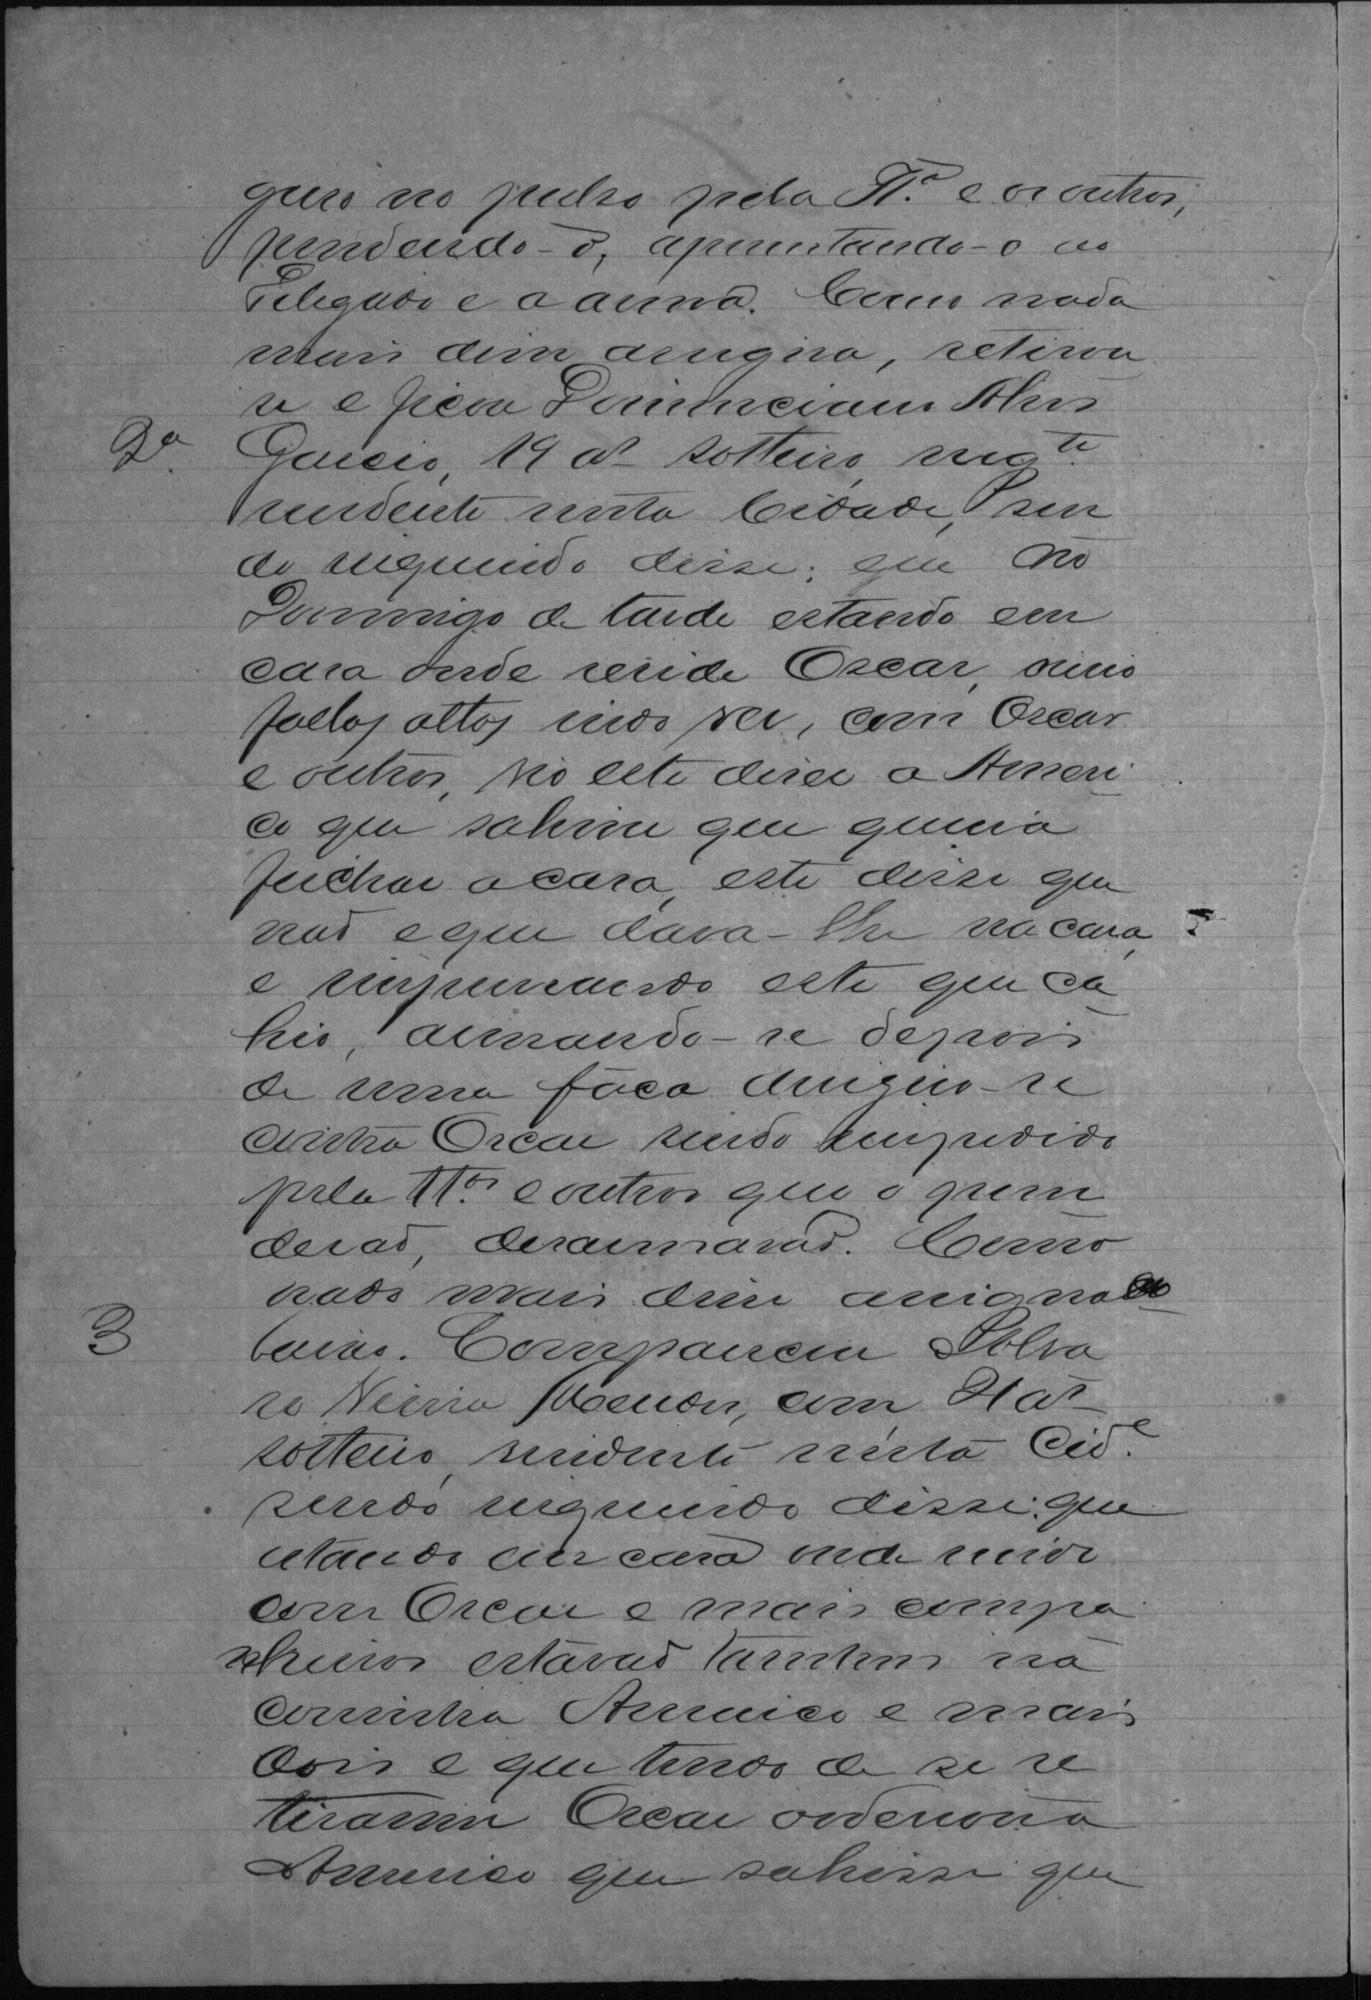 guro no pedro pela Tª. e os outros,
prendendo-o, apresentando-o ao
Delegado e a arma. Como nada
mais disse assigna, retirou
se e ficou Domiciano Alves
2ª. Garcia, 19 aˢ solteiro, neg.te
residente nesta Cidade, sen
do inquerido disse: que no
Domingo de tarde estando em
casa onde reside Oscar, ouvio
fallas altas indo ver, com Oscar
e outros, vio este dizer a Ameri
co que sahisse que queria
fechar a casa, este disse que
naõ e que dava-lhe na cara,
e empurrando este que ca
hio, armando-se depois
de uma faca dirigio-se
contra Oscar sendo impedido
pela Tªˢ. e outros que o pren
deraõ, desarmaraõ. Como
nada mais disse assigna
3 baixo. Compareceu Alva
ro Vieira Mendes, com aˢ
solteiro, residente nesta Cid.e
sendo inquerido disse: que
estando em casa onde reside
com Oscar e mais compa
nheiros estavaõ tambem na
cosinha Americo e mais
dois e que tendo de se re
tirarem Oscar ordenou a
Americo que sahisse que